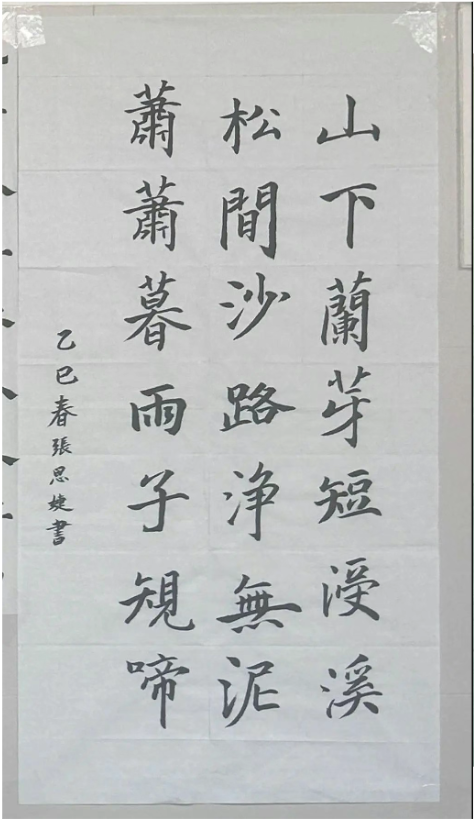 山下蘭芽短浸溪
松間沙路浄無泥
蕭蕭暮雨子規啼
乙巳春張思婕書